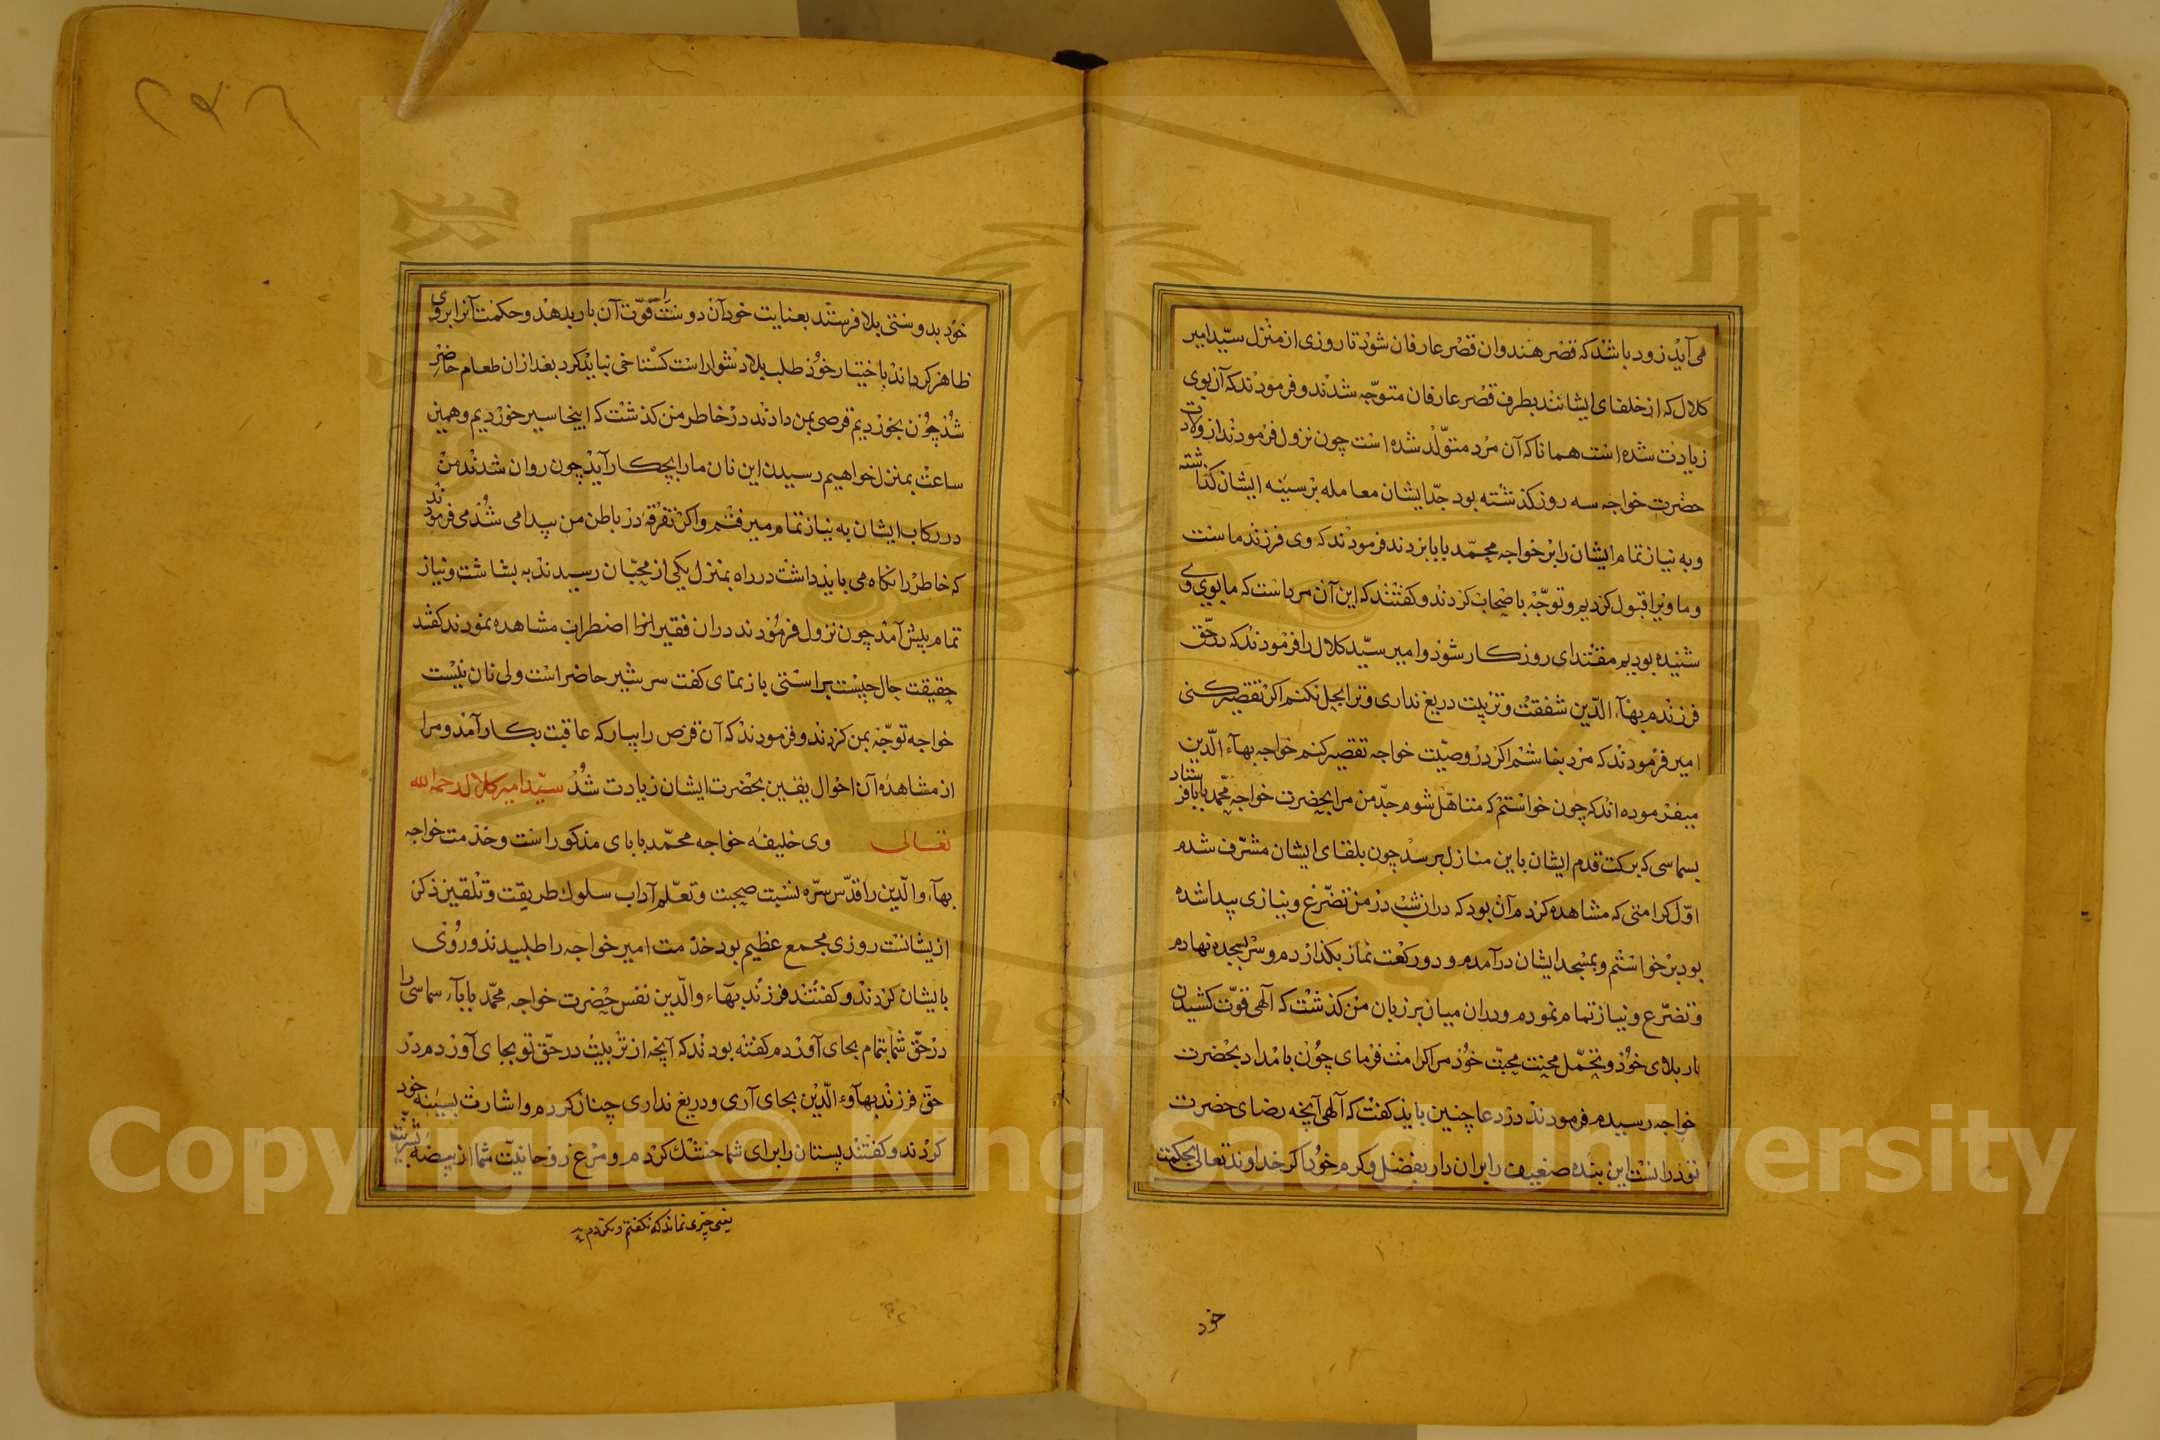 می آید زود باشد که قصر هندوان قصر عارفان شود تا روزی از منزل سید امیر
کلال که از خلفای ایشانند بطرف قصر عارفان متوجه شدند و فرمودند که آن بوی
زیادت شده است همانا که آن مرد متولد شده است چون نزول فرمودند از ولادت
حضرت خواجه سه روز کذشته بود جد ایشان معامله بر سینه ایشان کذاشته
و به نیاز تمام ایشان را بر خواجه محمد بابا بردند فرمودند که وی فرزند ماست
و ما ویرا قبول کردیم و توجه باصحاب کردند و کفتند که این آن مرد است که ما بوی وی
شنیده بودیم مقتدای روزکار شود و امیر سید کلال را فرمودند که در حق
فرزندم بهاء الدین شفقت و تربیت دریغ نداری و ترا بحل نکنم اکر تقصیر کنی
امیر فرمودند که مرد نباشم اکر در وصیت خواجه تقصیر کنم خواجه بهاء الدین
میفرموده اند که چون خواستم که متأهل شوم جد من مرا بحضرت خواجه محمد بابا فرستاد
بسماسی که برکت قدم ایشان باین منازل برسد چون بلقای ایشان مشرف شدم
اول کرامتی که مشاهده کردم آن بود که در ان شب در من تضرع و نیازی پیدا شده
بود برخواستم و بمسجد ایشان درآمدم و دو رکعت نماز بکذاردم و سر بسجده نهادم
و تضرع و نیاز تمام نمودم و دران میان بر زبان من کذشت که آلهی قوت کشیدن
بار بلای خود و تحمل محنت محبت خود مرا کرامت فرمای چون بامداد بحضرت
خواجه رسیدم فرمودند در دعا چنین باید کفت که آلهی آنچه رضای حضرت
تو در انست این بنده ضعیف را بران دار بفضل و کرم خود اکر خداوند تعالی بحکمت
خود
خود بدوستی بلا فرستند بعنایت خود آن دوست را قوت آن بار بدهد و حکمت آنرا بر وی
ظاهر کرداند باختیار خود طلب بلا دشوار است کستاخی نباید کرد بعد ازان طعام حاضر
شد چون بخوردیم قرصی بمن دادند در خاطر من کذشت که اینجا سیر خوردیم و همین
ساعت بمنزل خواهیم رسیدن این نان ما را بچکار آید چون روان شدند من
در رکاب ایشان به نیاز تمام میرفتم و اکر تفرقه در باطن من پیدا می شد می فرمودند
که خاطر را نکاه می باید داشت در راه بمنزل یکی از محبان رسیدند به بشاشت و نیاز
تمام پیش آمد چون نزول فرمودند دران فقیر اثر اضطراب مشاهده نمودند کفتند
حقیقت حال چیست براستی باز نمای کفت سر شیر حاضر است ولی نان نیست
خواجه توجه بمن کردند و فرمودند که آن قرص را بیار که عاقبت بکار آمد و مرا
از مشاهده آن احوال یقین بحضرت ایشان زیادت شد سید امیر کلال رحمه الله
تعالی وی خلیفه خواجه محمد بابای مذکور است و خدمت خواجه
بهاء والدین را قدس سره نسبت صحبت و تعلم آداب سلوک طریقت و تلقین ذکر
از یشانست روزی مجمع عظیم بود خدمت امیر خواجه را طلبیدند و روئی
بایشان کردند و کفتند فرزند بهاء والدین نفس حضرت خواجه محمد باباء سماسی را
در حق شما بتمام بجای آوردم کفته بودند که آنچه از تربیت در حق تو بجای آوردم در
حق فرزند بهاء والدین بجای آری و دریغ نداری چنان کردم و اشارت بسینه خود
کردند و کفتند پستان را برای شما خشک کردم و مرغ روحانیت شما از بیضه بشریت
یعنی چیزی نماند که نکفتم و نکردم
Copyright © King Saud University
1957